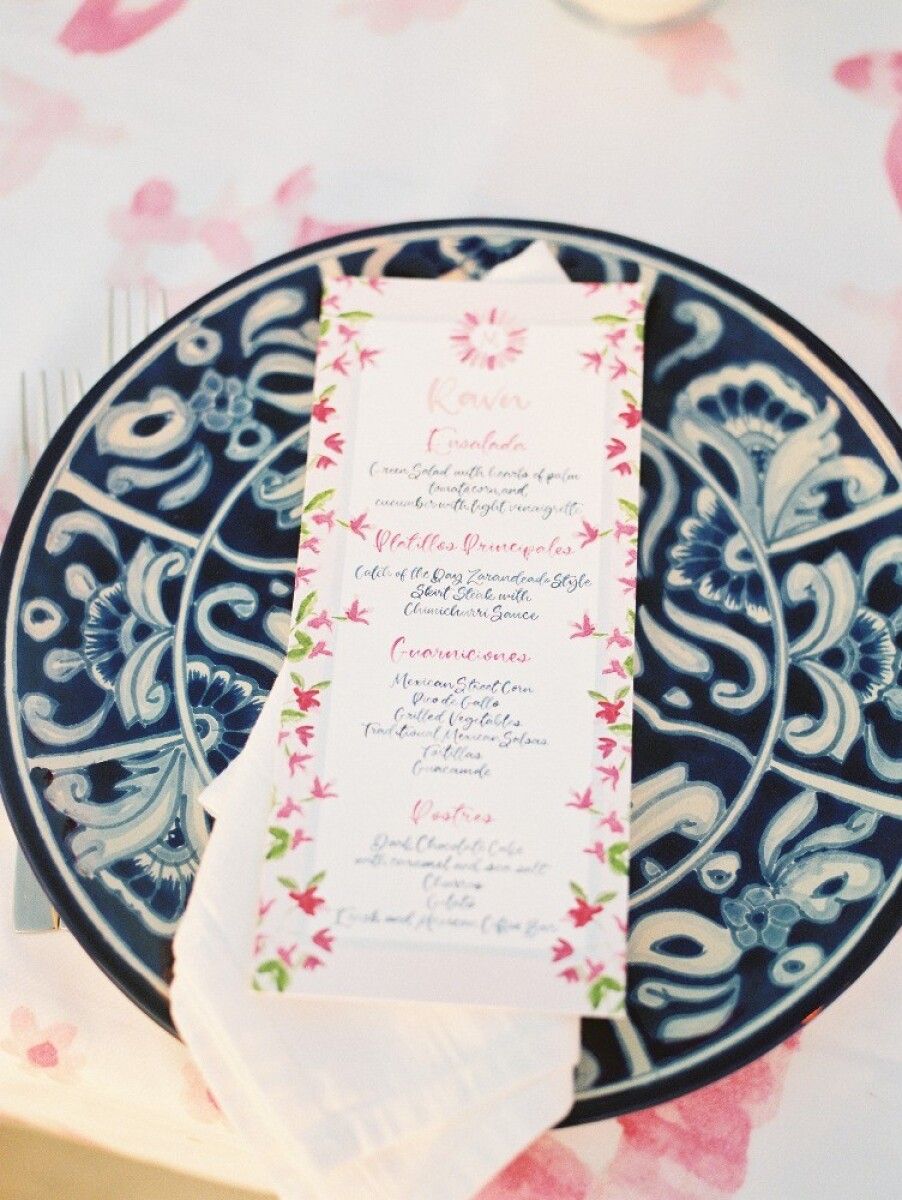 M
Ravn
Ensalada
Green Salad with hearts of palm
tomato, corn, and
cucumber with light vinaigrette
Platillos Principales
Catch of the Day Zarandeado Style
Skirt Steak with
Chimichurri Sauce
Guarniciones
Mexican Street Corn
Pico de Gallo
Grilled Vegetables
Traditional Mexican Salsas
Tortillas
Guacamole
Postres
Dark Chocolate Cake
with caramel and sea salt
Churros
Gelato
and Mexican Coffee Bar